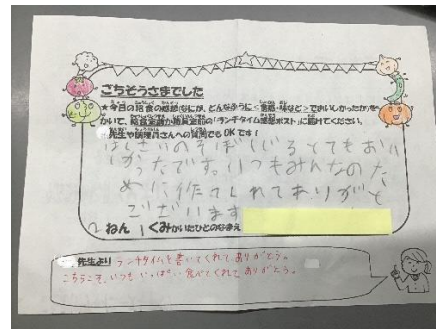 ごちそうさまでした
★今日の給食の感想(なにが、どんなふうに<食感・味など>でおいしかったか)を
かいて、給食室前か職員室前の「ランチタイム感想ポスト」に届けてください。
先生や調理員さんへの質問でもOKです!
はくさいのそぼくじるとてもおいし
かったです。いつもみんなのた
めに作ってくれてありがと
ございます
2ねん 1くみ かいたひとのなまえ
先生より ランチタイムを書いてくれてありがとう。
こちらこそ、いつもいっぱい食べてくれてありがとう。